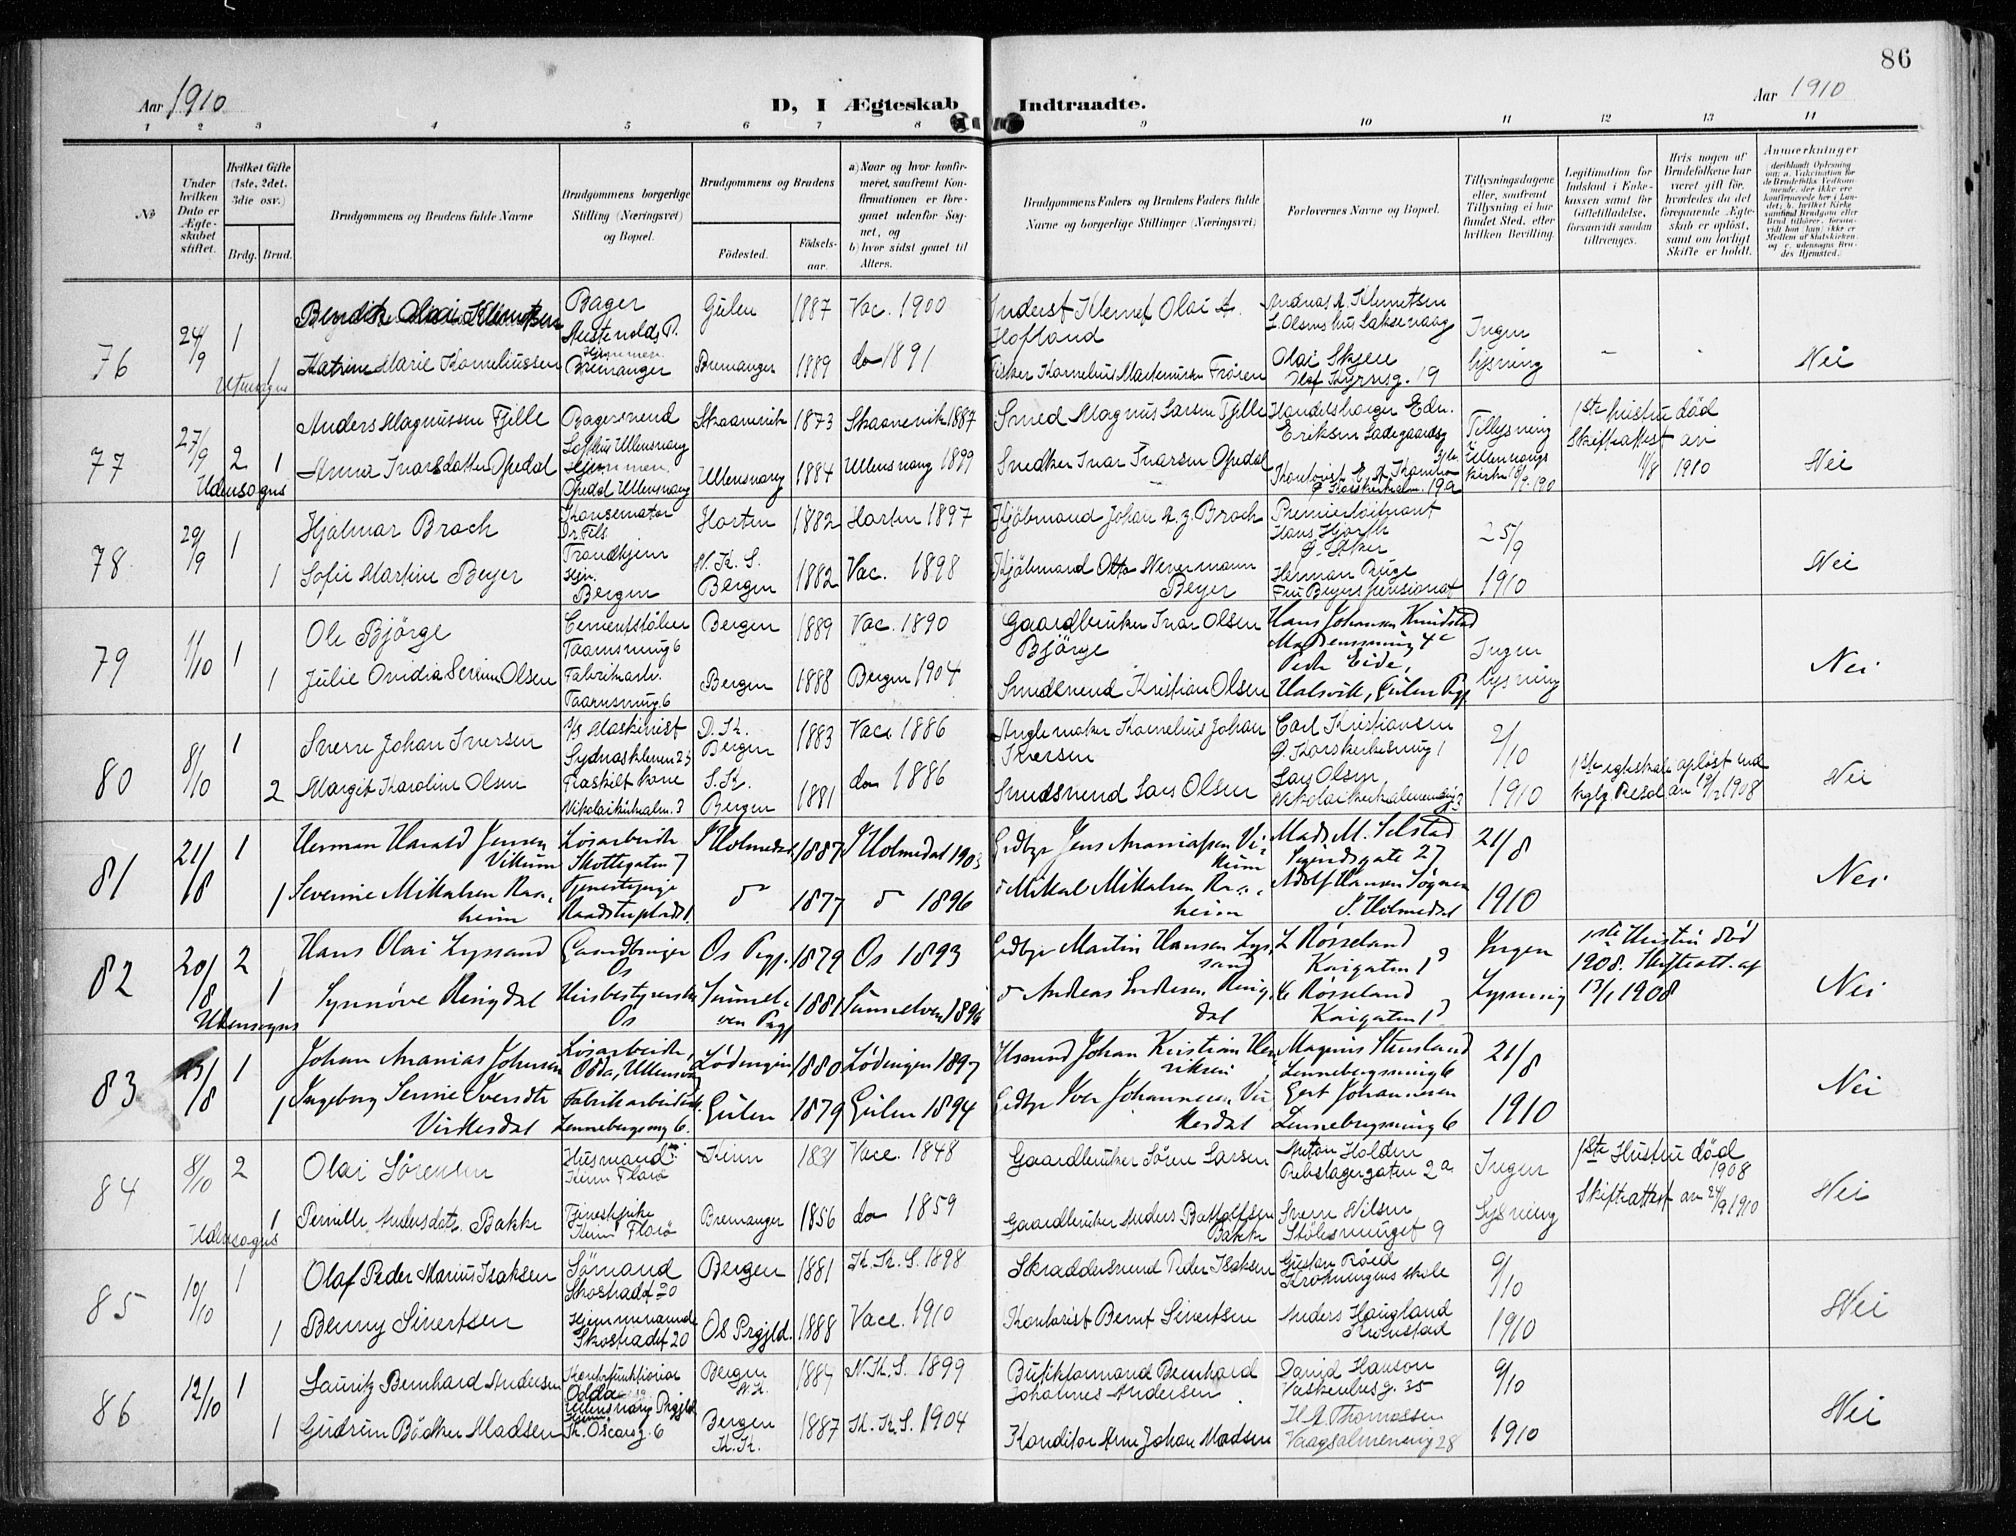 86
Aar 1910
D, I Ægteskab Indtraadte.
Aar 1910
1 2 3 4 5 6 7 8 9 10 11 12 13 14
№
Under hvilken Dato er Ægteskabet stiftet.
Hvilket Gifte (1ste, 2det, 3die osv.)
Brdg. Brud.
Brudgommens og Brudens fulde Navne
Brudgommens borgerlige Stilling (Næringsvei) og Bopæl.
Brudgommens og Brudens
Fødested.
Fødsels-aar.
a) Naar og hvor konfirmeret, saafremt Konfirmationen er foregaaet udenfor Sognet, og
b) hvor sidst gaaet til Alters.
Brudgommens Faders og Brudens Faders fulde Navne og borgerlige Stillinger (Næringsvei)
Forlovernes Navne og Bopæl.
Tillysningsdagene eller, saafremt Tillysning ei har fundet Sted, efter hvilken Bevilling.
Legitimation for Indskud i Enkekassen samt for Giftetilladelse, forsaavidt saadan tiltrænges.
Hvis nogen af Brudefolkene har været gift før, hvorledes da det foregaaende Ægteskab er opløst, samt om lovligt Skifte er holdt.
Anmærkninger
76 24/9 1 Bendik Olai Klemetsen Bager Gulen 1887 Vac. 1900
Hofland Andreas A. Klemetsen Ingen
1 Katrine Marie Korneliussen Hjemmen. Bremanger Bremanger 1889 do 1891
Fisker Kornelius Martinusen Frøien Olai Skjen lysning Nei
Utensogns
77 27/9 2 Anders Magnussen Fjelle Bagersvend Skaanevik 1873 Skaanevik 1887
Smed Magnus Larsen Fjelle Handelsborger Edv. Eriksen Ladegaardsg Tillysning 1ste hustru død
1 Anna Ivarsdatter Opedal Hjemmen. Opedal Ullensvang Ullensvang 1884 Ullensvang 1899
Snedker Ivar Ivarsen Opedal Ullensvangs Kirke Skifteattest av 11/8 1910 Nei
Udensogns
78 29/9 1 Hjalmar Broch Konservator Dr Fils Trondhjem Horten 1882 Horten 1897
Kjøbmand Johan A. Z. Broch Premierløitnant Hans Hjorth 25/9
1 Sofie Martine Beyer Hjm. Bergen N. K. S. Bergen 1882 Vac. 1898
Kjøbmand Otto Nevermann Beyer Herman Ruge Fru Beyers pensionat 1910 Nei
79 1/10 1 Ole Bjørge Cementstøber Taarnsmug 6 Bergen 1889 Vac. 1890
Gaardbruker Ivar Olsen Bjørge Hans Johansen Ingen
1 Julie Ovidia Severine Olsen Fabrikarb. Taarnsmug. 6 Bergen 1888 Bergen 1904
Smedsvend Kristian Olsen Peder Eide, Gulen Pgj lysning Nei
80 8/10 1 Sverre Johan Iversen Maskinist Sydnæskleven 25 D. K. Bergen 1883 Vac. 1886
Kornelius Johan Iversen Carl Kristiansen 2/10
2 Margit Karoline Olsen Fraskilt kone Nikolaikirkealm. 3 S. K. Bergen 1881 do 1886
Smedsvend Lars Olsen Lars Olsen, 1910 1ste egteskab opløst ved kglg Resol av 1908 Nei
81 21/8 1 Herman Harald Jensen Vikum Løsarbeider Skottegaten 7 Y Holmedal 1887 Y Holmedal 1903
Gdbr Jens Mads M. Selstad Sigurdsgate 27 21/8
1 Severine Mikalsen Raaheim Tjenestepige do 1877 do 1896
do Mikal Mikalsen Raaheim Adolf Hansen Y. Holmedal 1910 Nei
82 20/8 2 Hans Olai Lyssand Gaardbruger Os Os Pgj. 1879 Os 1893
Gdbr Martin Hansen Lyssand L Røsseland Kaigaten 1 Ingen 1ste Hustru død 1908. Skifteatt. af
1 Synnøve Ringdal Husbestyrerske Os Sunnelven Pgj 1881 Sunnelven 1896
do Andreas Ringdal Røsseland Kaigaten 1 Lysning 13/1 1908 Nei
Utensogns
83 /8 1 Johan Ananias Johansen Løsarbeider, Odda, Ullensvang Lødingen 1880 Lødingen 1897
Husmand Johan Kristian Henriksen Magnus Stensland Lennebergsmug 6 21/8
1 Ingeborg Serine Iversdtr Virkesdal Fabrikarbeider. Lennebergsmug 6. Gulen 1879 Gulen 1894
Gdbr Iver Johannesen Virkesdal Gert Johannesen Lennebergsmug 6 1910 Nei
84 8/10 2 Olai Sørensen Husmand Kinn Florø Kinn 1831 Vacc. 1848
Gaardbruker Søren Larsen Anton Holden Rebslagergaten 2a Ingen 1ste Hustru død 1908
1 Pernille Andersdatr. Bakke Tjenestepike Kinn Florø Bremanger 1856 do 1859
Gaardbruker Anders Bakke Sverre Nilsen Stølesmuget 9 Lysning Skifteattest av 24/9 1910 Nei
Udensogns
85 10/10 1 Olaf Peder Marius Isaksen Sømand Skostrædt 20 Bergen 1881 K. K. S. 1898
Skræddersvend Peder Isaksen Gustav Røid Kroningens skole 9/10
1 Benny Sivertsen Hjemmeværende Skostrædt 20 Os Prgjld. 1888 Vacc. 1910
Kontorist Bernt Sivertsen Anders Haugland Kronstad 1910 Nei
86 12/10 1 Lauritz Bernhard Andersen Kontorfunktionær Odda Ullensvang Prgjld Bergen N. K. 1884 N. K. S. 1899
Butikformand Bernhard Johannes Andersen David Hanson 9/10
1 Gudrun Bødker Madsen Hjem K. Oscarsg. 6 Bergen K. K. 1887 K. K. S. 1904
Konditor Arne Johan Madsen H A Thomassen Vaagsalmening 28 1910 Nei